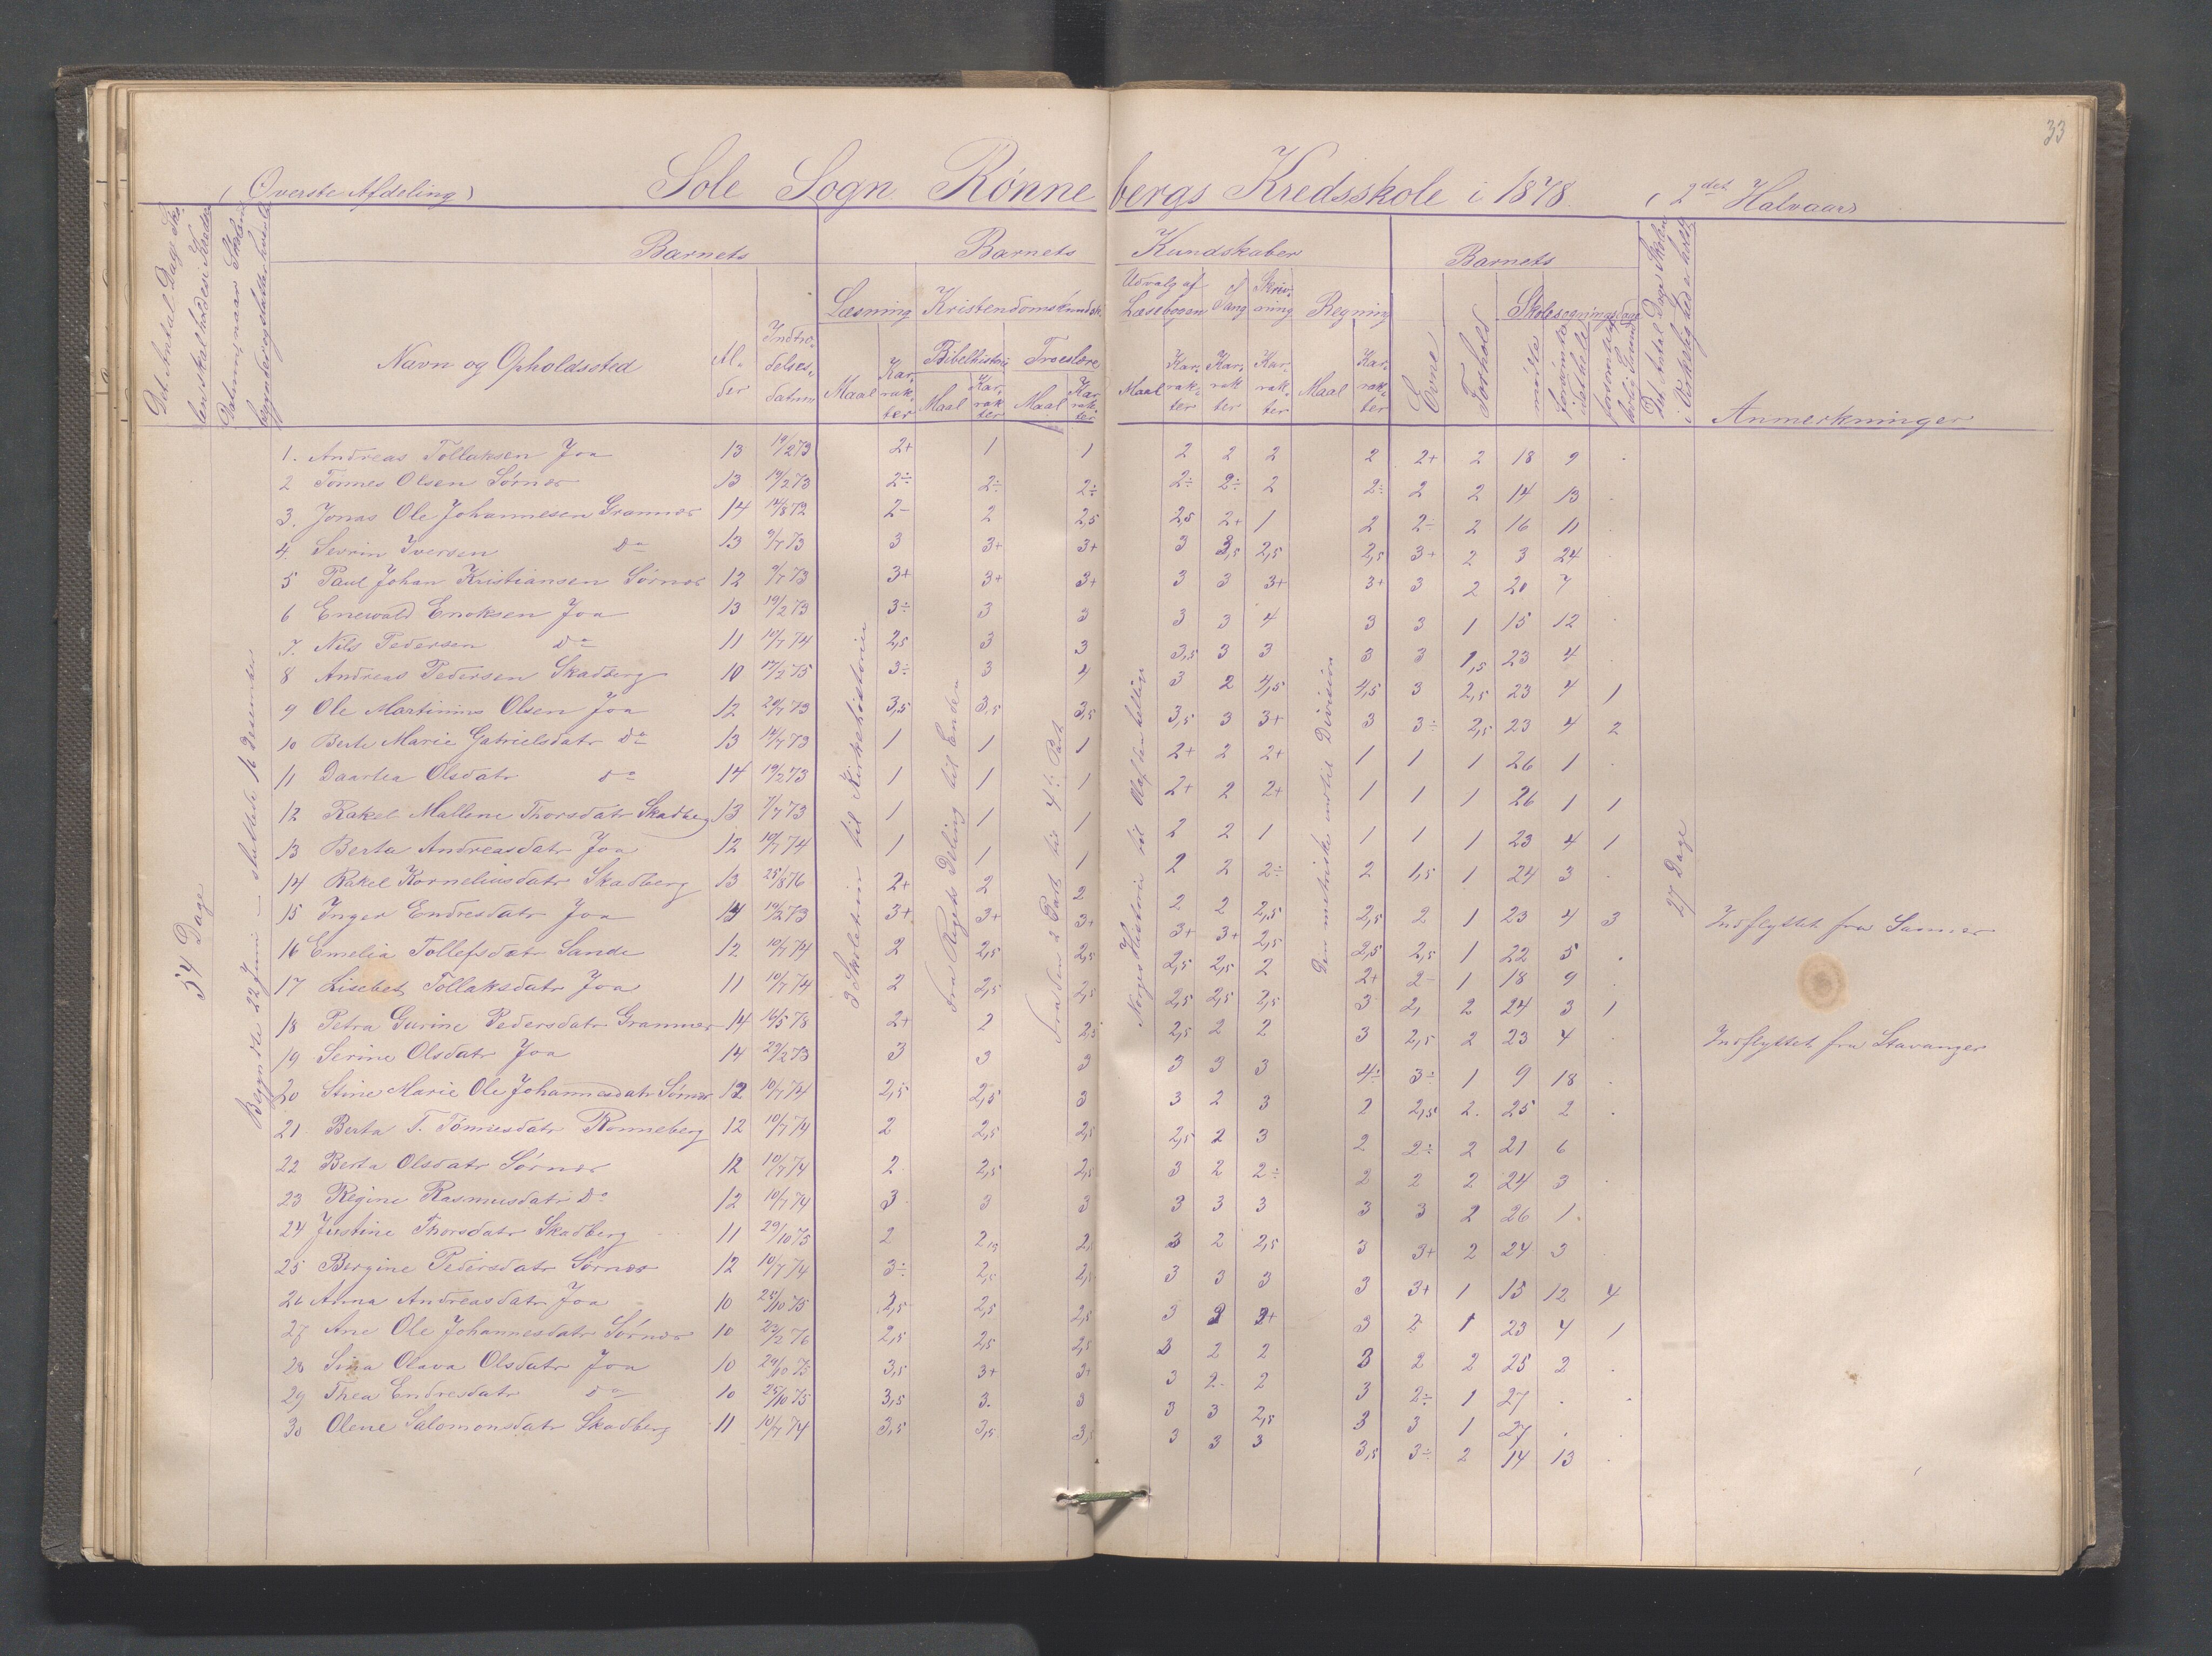 33
(Øverste Afdeling) Sole Sogn Rønnebergs Kredsskole i 1878. (2det Halvaar)
Det Antal Dage Skolen skal holdes i Kredsen
Datum, naar Skolen begynder og slutter hvert
Barnets
Barnets Kundskaber
Barnets
Det Antal Dage Skolen i Virkelighed er holdt
Navn og Opholdssted
Alder
Indtrædelsesdatum
Læsning Kristendomskundsk.
Udvalg af Læsebogen
Sang
Skrivning
Regning
Bibelhistorie Troeslære
Maal Karakter Maal Karakter Maal Karakter
Maal Karakter Karakter Karakter Maal Karakter
Evne
Forhold
Skolesøgningsdage
mødte
forsømte i det hele
forsømte af lovlig Grund
Anmerkninger
54 Dage
Begyndte 22 Juni – sluttede 16 Desember
2 Skoletrin til Kirkehistorien
Fra Rigets Deling til Enden
Fra den 2 Part til 4: Part
Norges Historie til Olaf den hellige
Den metriske indtil Division
27 Dage
1. Andreas Tollaksen Joa 13 19/2 73 2+ 1 1 2 2 2 2 2+ 2 18 9 .
2 Tønnes Olsen Sørnes 13 19/2 73 2÷ 2÷ 2÷ 2÷ 2÷ 2 2÷ 2 2 14 13 .
3. Jonas Ole Johannesen Grannes 14 12/8 72 2- 2 2,5 2,5 2+ 1 2 2÷ 2 16 11 .
4. Sevrin Iversen Do 13 9/7 73 3 3+ 3+ 3 3,5 2,5 2,5 3+ 2 3 24 .
5 Paul Johan Kristiansen Sørnes 12 9/7 73 3+ 3+ 3+ 3 3 3+ 3+ 3 2 20 7
6 Enewald Enoksen Joa 13 19/2 73 3÷ 3 3 3 3 4 3 3 1 15 12 .
7. Nils Pedersen Do 11 10/7 74 2,5 3 3 3,5 3 3 3 3 1,5 23 4 .
8 Andreas Pedersen Skadberg 10 17/2 75 3÷ 3 4 3 2 4,5 4,5 3 2,5 23 4 1
9 Ole Martinius Olsen Joa 12 29/7 73 3,5 3,5 3,5 3,5 3 3+ 3 3÷ 2,5 23 4 2
10 Berte Marie Gabrielsdatr Do 13 14/7 73 1 1 1 2+ 2 2+ 1 1 1 26 1 .
11 Daartea Olsdatr Do 14 19/2 73 1 1 1 2+ 2 2+ 1 1 1 26 1 1
12 Rakel Mallene Thorsdatr Skadberg 13 9/7 73 1 1 1 2 2 1 1 1 1 23 4 1
13 Berta Andreasdatr Joa 12 10/7 74 1 1 1 2 2 2÷ 2 1,5 1 24 3 .
14 Rakel Kornelinsdatr Skadberg 13 25/8 76 2+ 2 2 2 2 2,5 2,5 2 1 23 4 3 Indflyttet fra
15 Inger Endresdatr Joa 14 19/2 73 3+ 3+ 3+ 3+ 3+ 2,5 2,5 2,5 1 22 5 .
16 Emelia Tollefsdatr Sande 12 10/7 74 2 2,5 2,5 2,5 2,5 2 2+ 2- 1 18 9 .
17 Lisebet Tollaksdatr Joa 11 10/7 74 2 2,5 2,5 2,5 2,5 2,5 3 2, 2 24 3 1
18 Petra Gurine Pedersdatr Grannes 14 16/5 78 2+ 2 2,5 2,5 2 2 3 2,5 2 23 4 . Indflyttet fra Stavanger
19 Serine Olsdatr Joa 14 29/2 73 3 3 3 3 3 3 4÷ 3÷ 1 9 18 .
20 Stine Marie Ole Johannesdatr Sørnes 12 10/7 74 2,5 2,5 3 3 2 3 2 2,5 2. 25 2 .
21 Berta T. Tønnesdatr Rønneberg 12 10/7 74 2 2,5 2,5 2,5 2 3 2 2÷ 2 21 6
22 Berta Olsdatr Sørnes 12 10/7 74 2 2,5 2,5 3 2 2÷ 2 2 2 24 3 .
23 Regine Rasmusdatr Do 12 10/7 74 3 3 3 3 3 3 3 3 2 26 1.
24 Justine Thorsdatr Skadberg 11 29/10 75 2 2,5 2, 3 2 2,5 3 3+ 2 24 3
25 Bergine Pedersdatr Sørnes 12 10/7 74 3÷ 2,5 2,5 3 3 3 3 3+ 1 15 12 4
26 Anna Andreasdatr Joa 10 25/10 75 2,5 2,5 2,5 3 2 2+ 3 2 1 23 4 1
27 Ane Ole Johannesdatr Sørnes 10 23/2 76 2,5 2,5 2,5 3 2 2 3 2 2 25 2 .
28 Sina Olava Olsdatr Joa 10 29/10 75 3,5 3+ 3+ 3 2 2 3 2÷ 1 27 . .
29 Thea Endresdatr Do 10 25/10 75 3,5 3. 3 3 3 2,5 3 3 1 27 . .
30 Olene Salomonsdatr Skadberg 11 10/7 74 3,5 3,5 3,5 3 3 3 3,5 3÷ 2 14 13 .